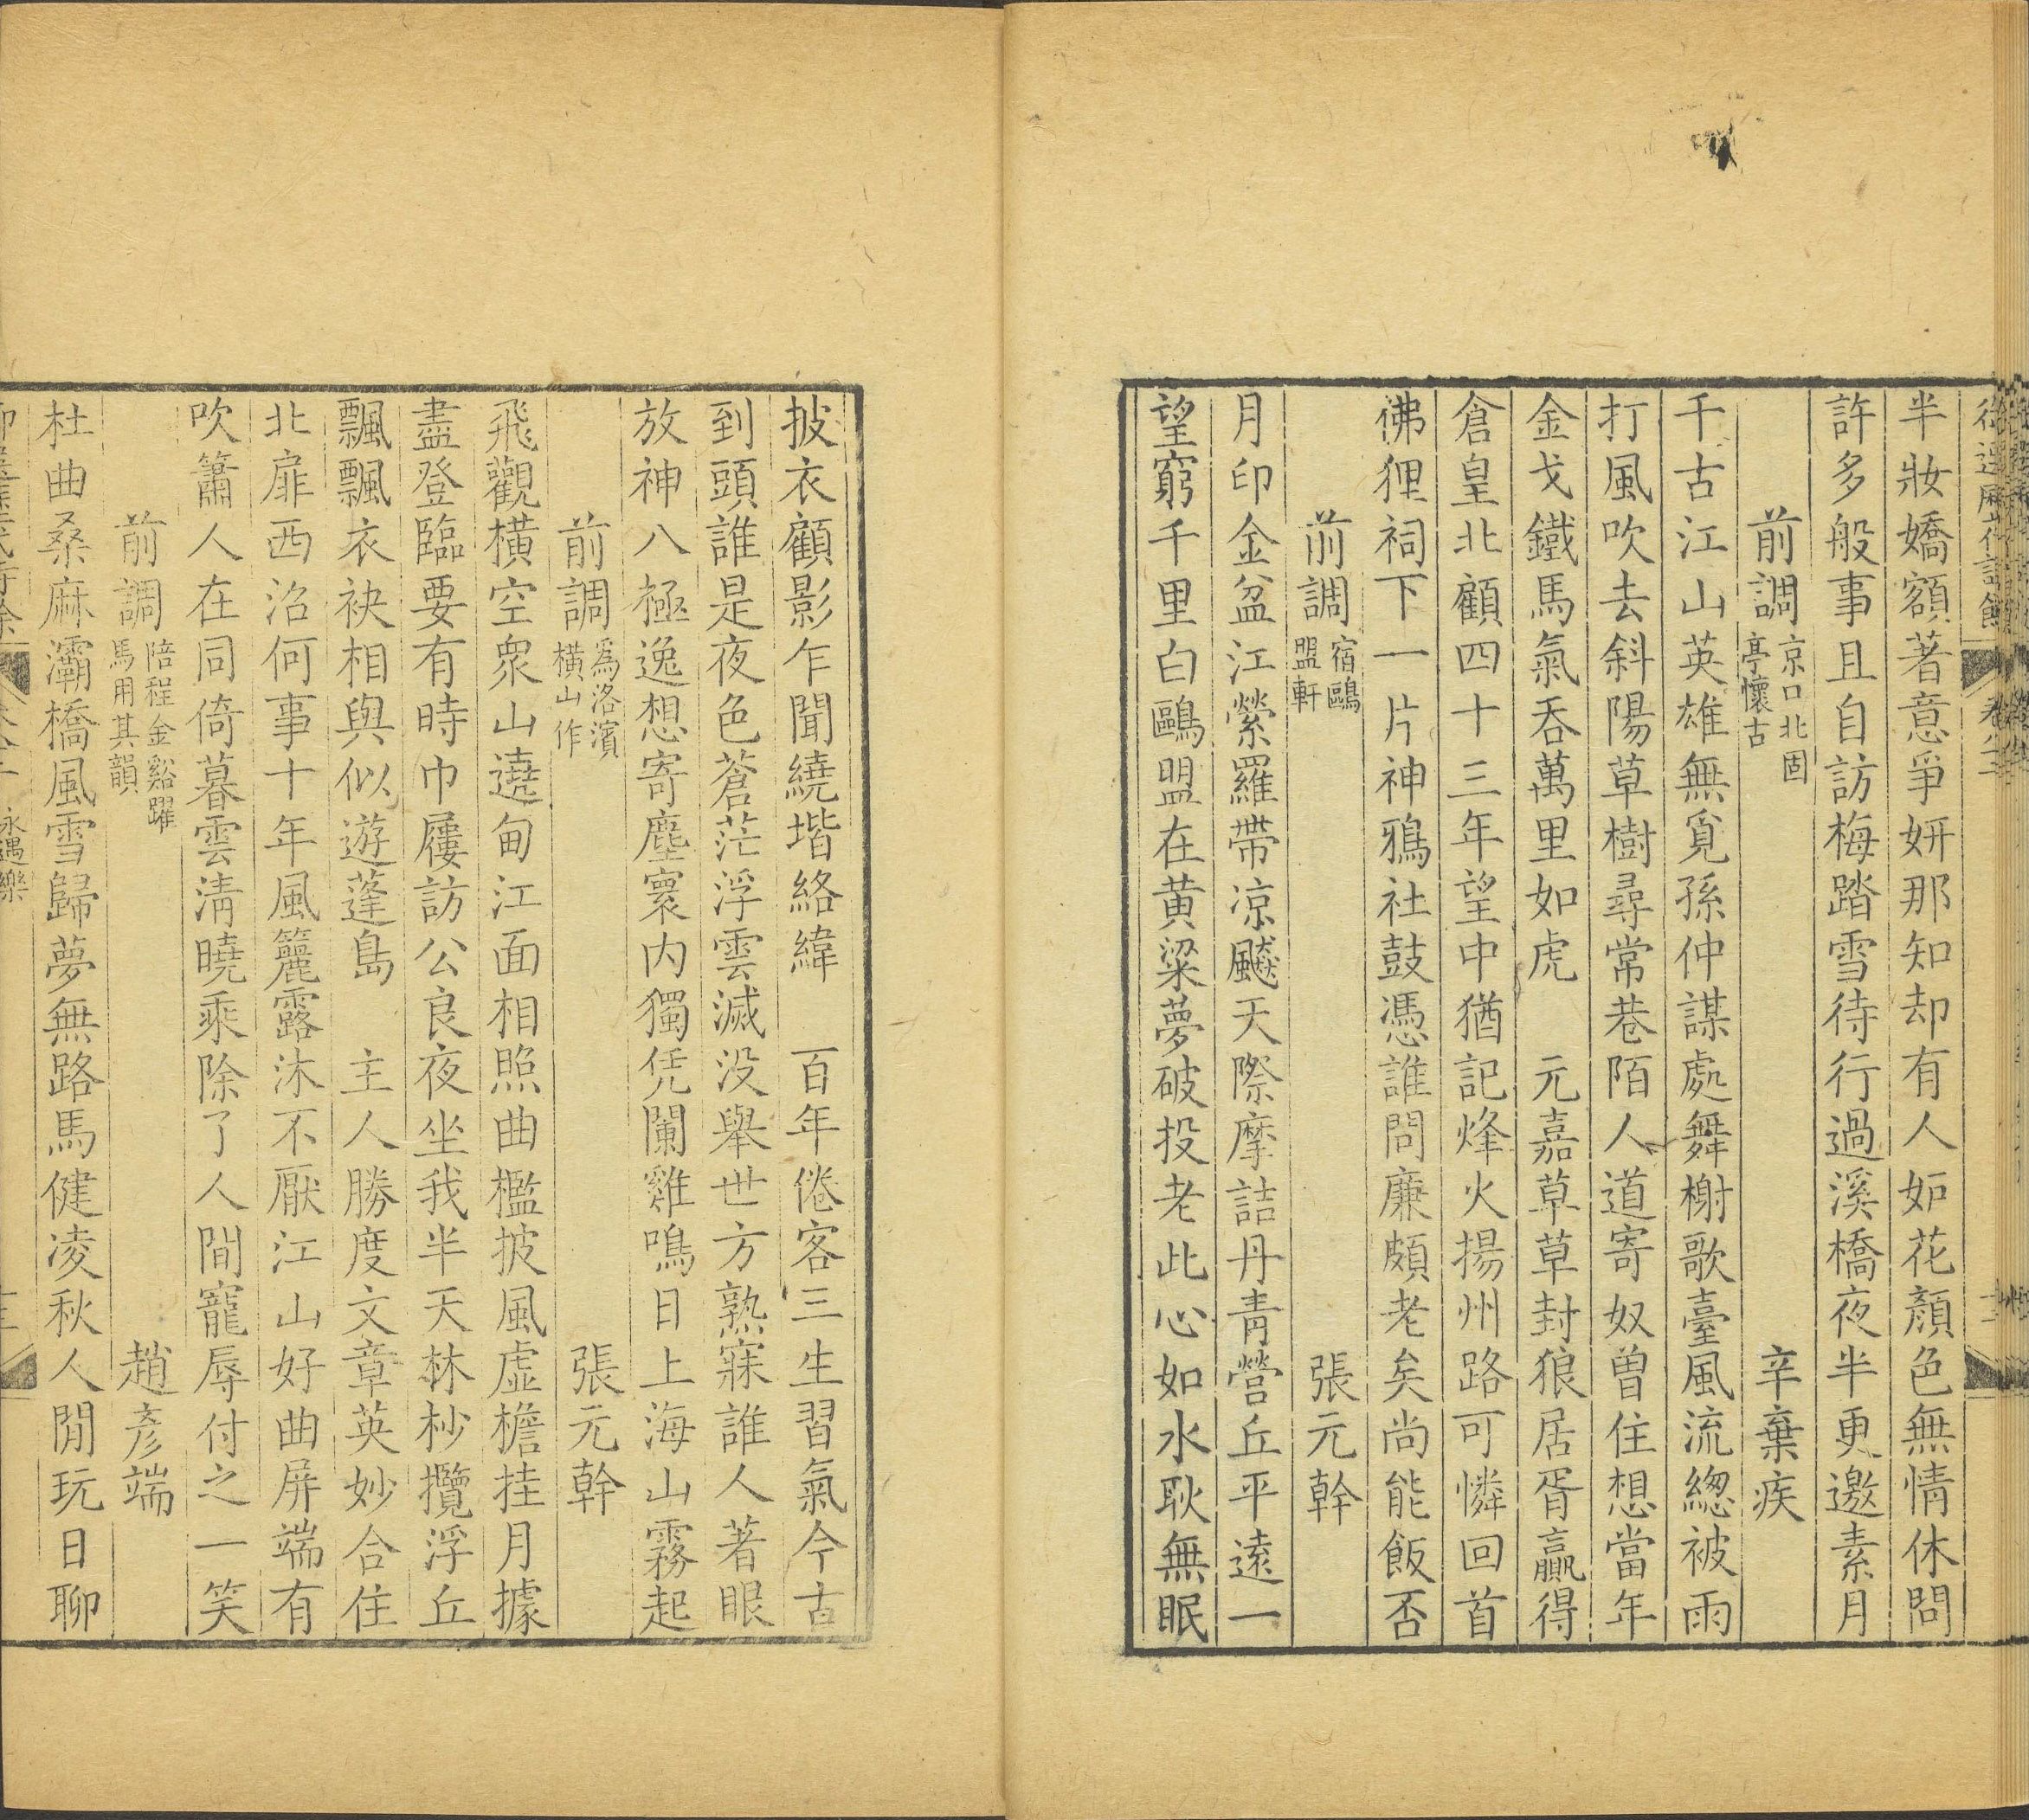 半妝嬌額著意爭妍那知却有人妬花顏色無情休問
許多般事且自訪梅踏雪待行過溪橋夜半更邀素月
前調 京口北固亭懷古 辛棄疾
千古江山英雄無覓孫仲謀處舞榭歌臺風流緫被雨
打風吹去斜陽草樹尋常巷陌人道寄奴曾住想當年
金戈鐵馬氣吞萬里如虎 元嘉草草封狼居胥贏得
倉皇北顧四十三年望中猶記烽火揚州路可憐回首
佛狸祠下一片神鴉社鼓憑誰問廉頗老矣尚能飯否
前調 宿鷗盟軒 張元幹
月印金盆江縈羅帶凉飈天際摩詰丹青營丘平遠一
望窮千里白鷗盟在黄粱夢破投老此心如水耿無眠
披衣顧影乍聞繞堦絡緯 百年倦客三生習氣今古
到頭誰是夜色蒼茫浮雲滅没舉世方熟寐誰人著眼
放神八極逸想寄塵寰内獨凭闌雞鳴日上海山霧起
前調 爲洛濱橫山作 張元幹
飛觀橫空衆山遶甸江面相照曲檻披風虛檐挂月據
盡登臨要有時巾屨訪公良夜坐我半天林杪攬浮丘
飄飄衣袂相與似遊蓬島 主人勝度文章英妙合住
北扉西沼何事十年風簏露沐不厭江山好曲屏端有
吹簫人在同倚暮雲清曉乘除了人間寵辱付之一笑
前調 陪程金谿躍馬用其韻 趙彥端
杜曲桑麻灞橋風雪歸夢無路馬健凌秋人閒玩日聊
永遇樂